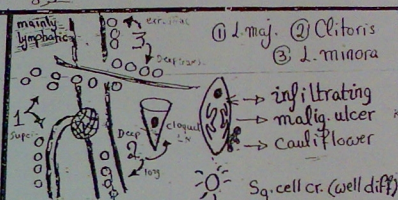 mainly
lymphatic
ext. iliac
3
Deep
① L.maj. ② Clitoris
③ L.minora
1
Super.
Deep
2
cloquet
LN
long
infiltrating
malig.ulcer
cauliflower
Sq.cell cr.(well diff)